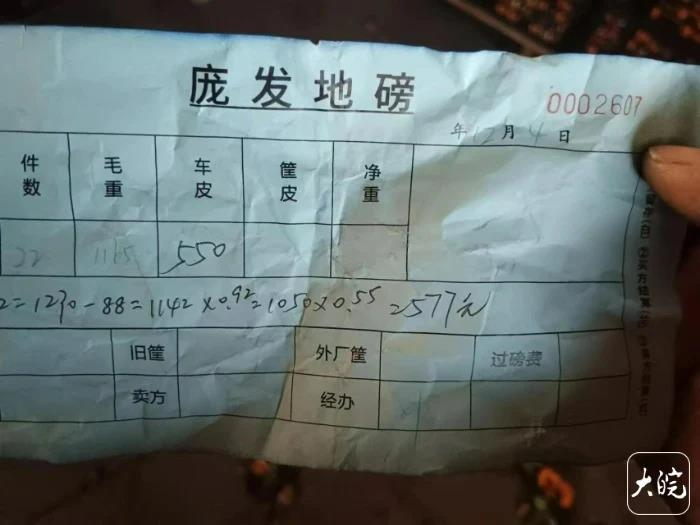 庞发地磅
0002607
年12月4日
件数 毛重 车皮 筐皮 净重
22 1165 550
2=1230-88=1142×0.92=1050×0.55=577元
旧筐 外厂筐 过磅费
卖方 经办
②买方结算
大皖